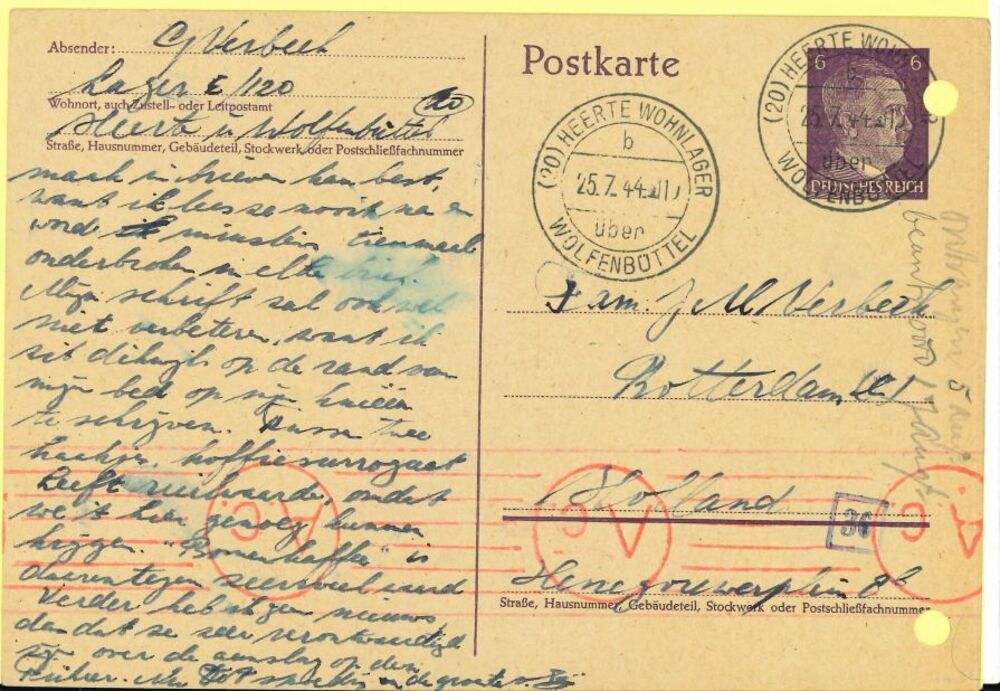 Absender: C Verbeek
Lager E/120
Wohnort, auch Zustell- oder Leitpostamt
(20)
Heerte ü Wolfenbüttel
Straße, Hausnummer, Gebäudeteil, Stockwerk oder Postschließfachnummer
maak in brieven kan best,
want ik lees ze nooit na en
word minstens tienmaal
onderbroken in elke brief.
Mijn schrift sal ook wel
niet verbeteren, want ik
sit dikwijls op de rand van
mijn bed op mijn knieën
te schrijven. Tussen twee
haakjes, koffiesurrogaat
heeft ruilwaarde, omdat
we 't hier genoeg kunnen
krijgen. "Bonenkoffie" is
daarentegen zeer veel waard
Verder heb ik geen nieuws
dan dat se zeer verontwaardigd
zijn over de aanslag op den
Führer. Nu tot spoedig en de groeten v.
Postkarte
6 6
DEUTSCHES REICH
(20) HEERTE WOHNLAGER
b
25.7.44
über
WOLFENBÜTTEL
(20) HEERTE WOHNLAGER
b
25.7.44
über
WOLFENBÜTTEL
Fam. J M Verbeek
Rotterdam
Holland
36
Henegouwerplein 8b
Straße, Hausnummer, Gebäudeteil, Stockwerk oder Postschließfachnummer
Ontvangen 5 Aug.
beantwoord
A.c.
A.c.
A.c.